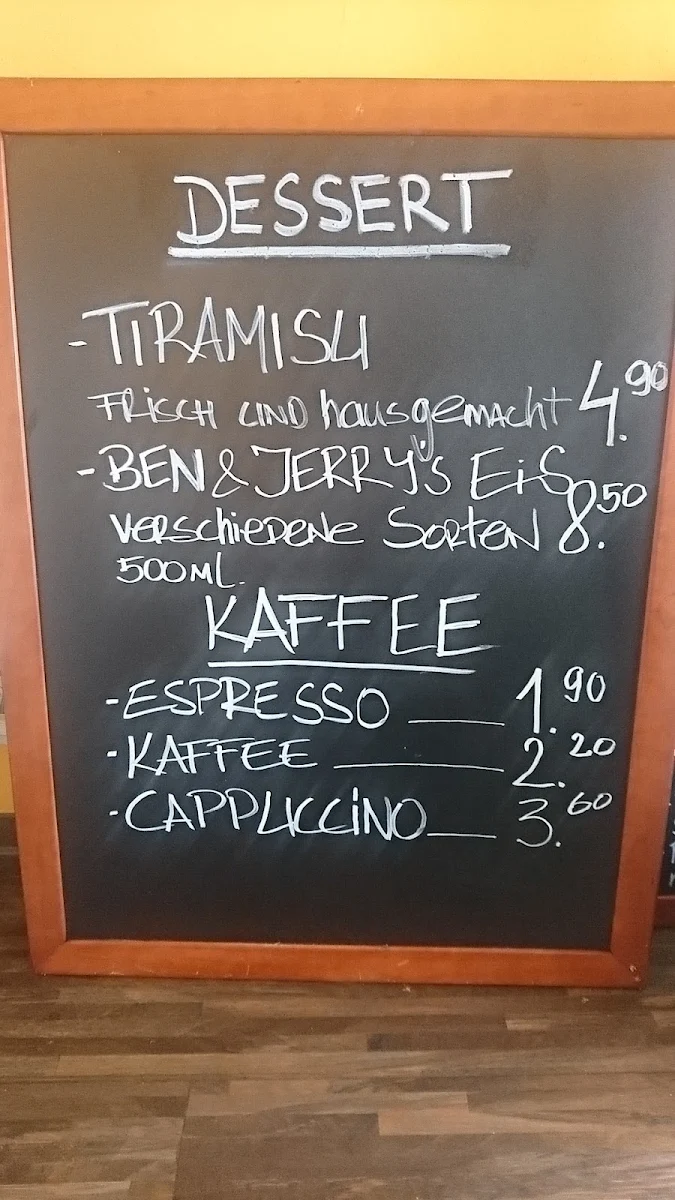 DESSERT
- TIRAMISU
FRISCH UND hausgemacht 4.90
- BEN & JERRY'S EIS
verschiedene Sorten 8.50
500ML.
KAFFEE
- ESPRESSO ___ 1.90
- KAFFEE ___ 2.20
- CAPPUCCINO ___ 3.60